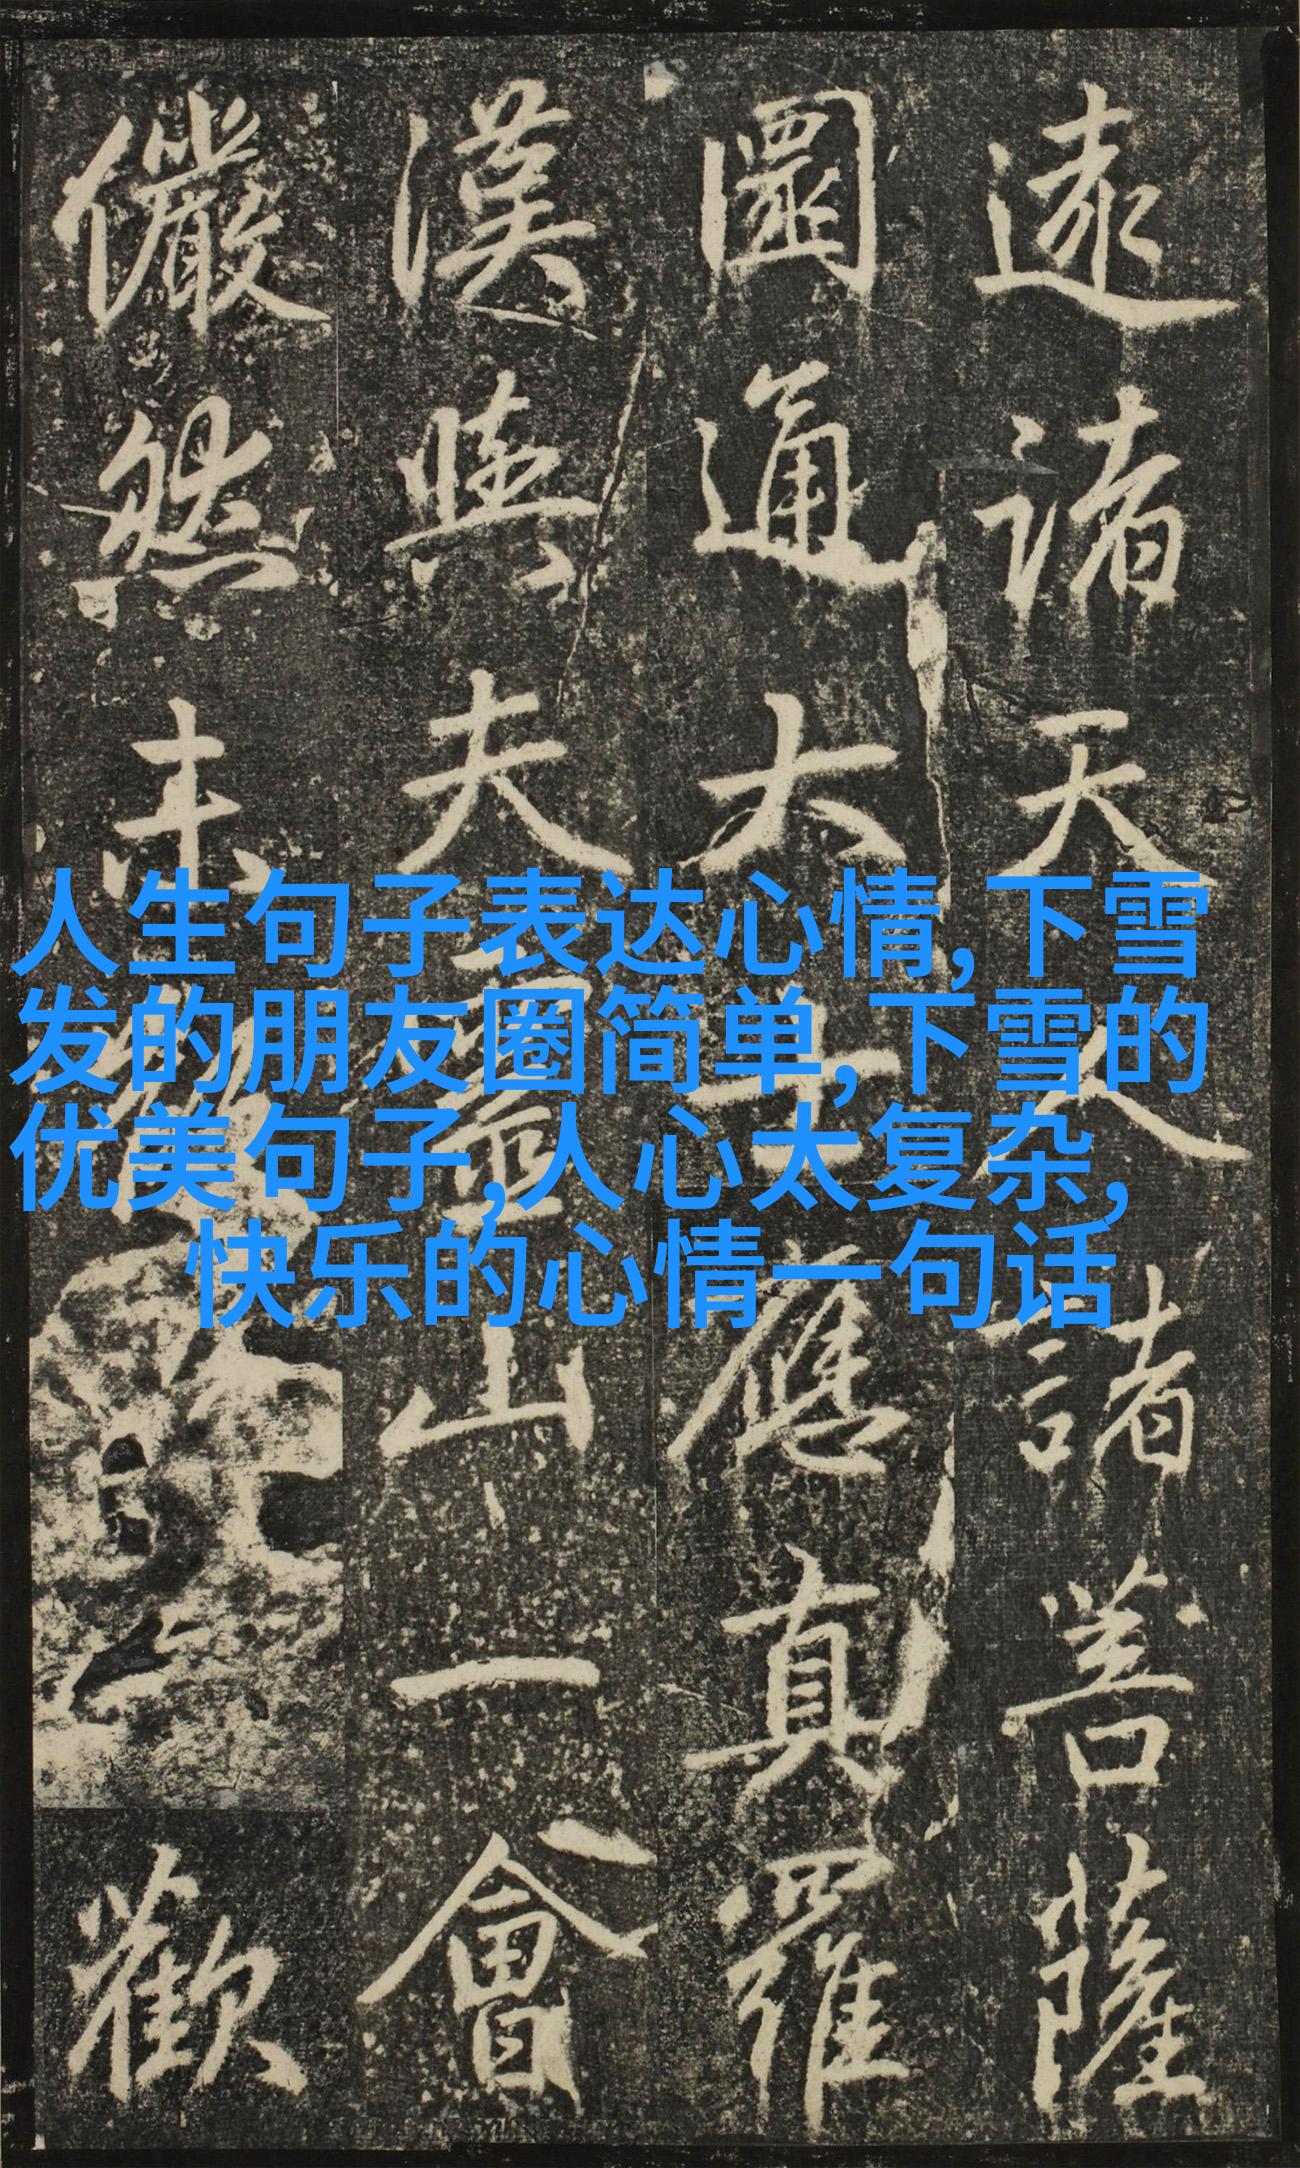 諸天人諸菩薩
圓通大士應真羅
漢與夫靈山一會
儼然未歡
人生句子表达心情,下雪
发的朋友圈简单,下雪的
优美句子,人心太复杂,
快乐的心情一句话